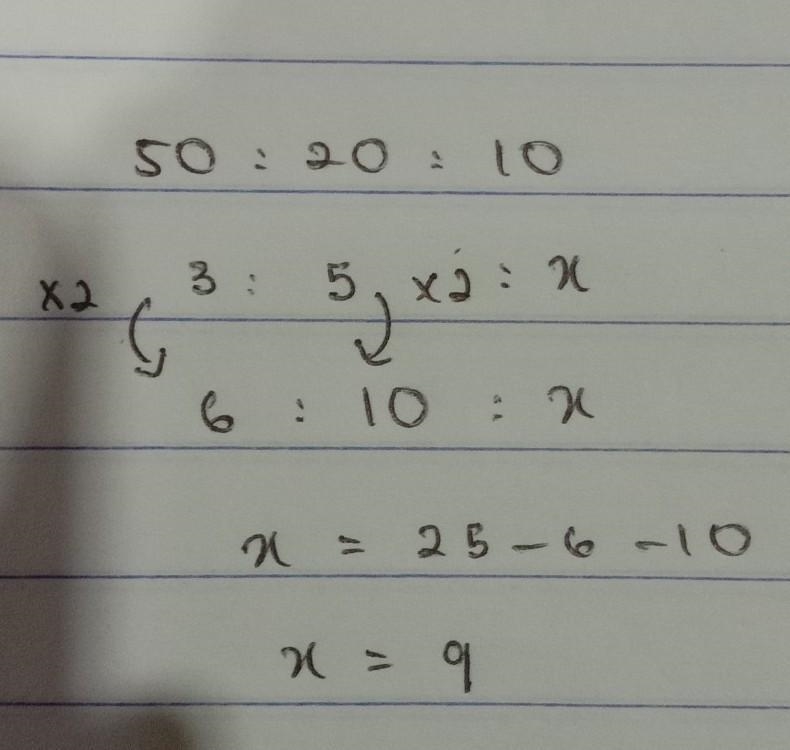 50 : 20 : 10
x2 3 : 5 x2 : x
6 : 10 : x
x = 25 - 6 - 10
x = 9